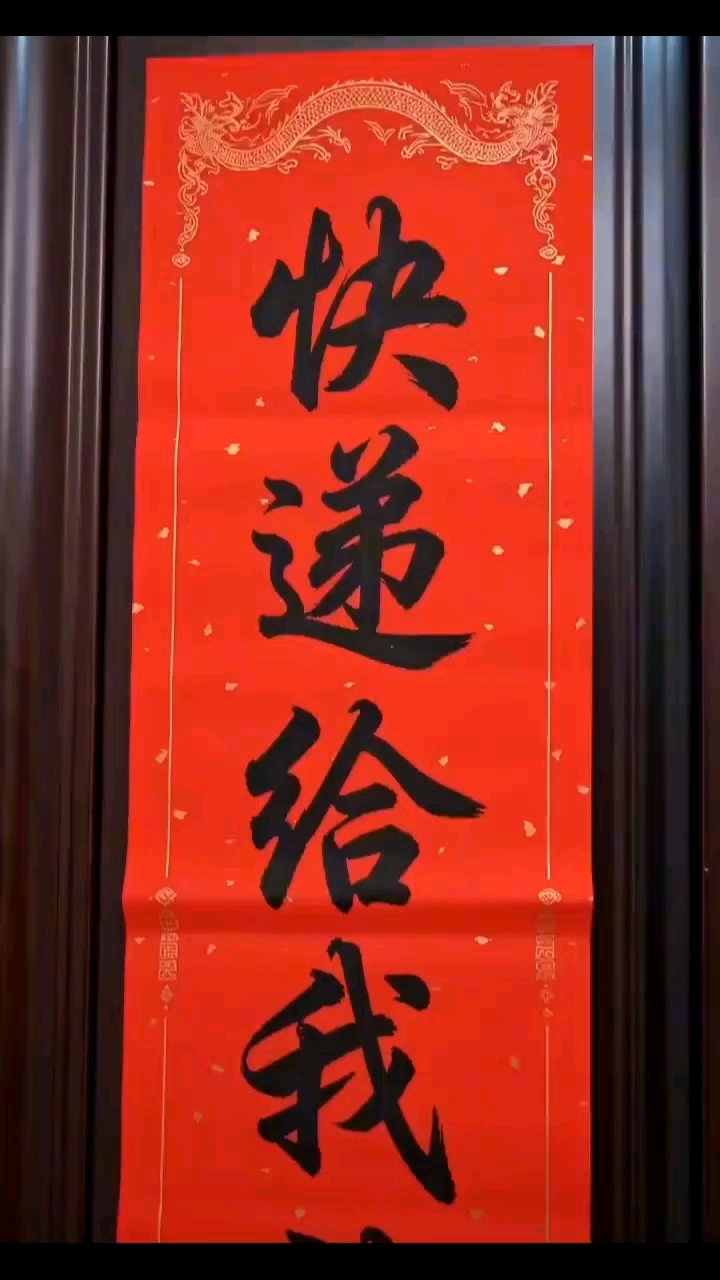 快递给我